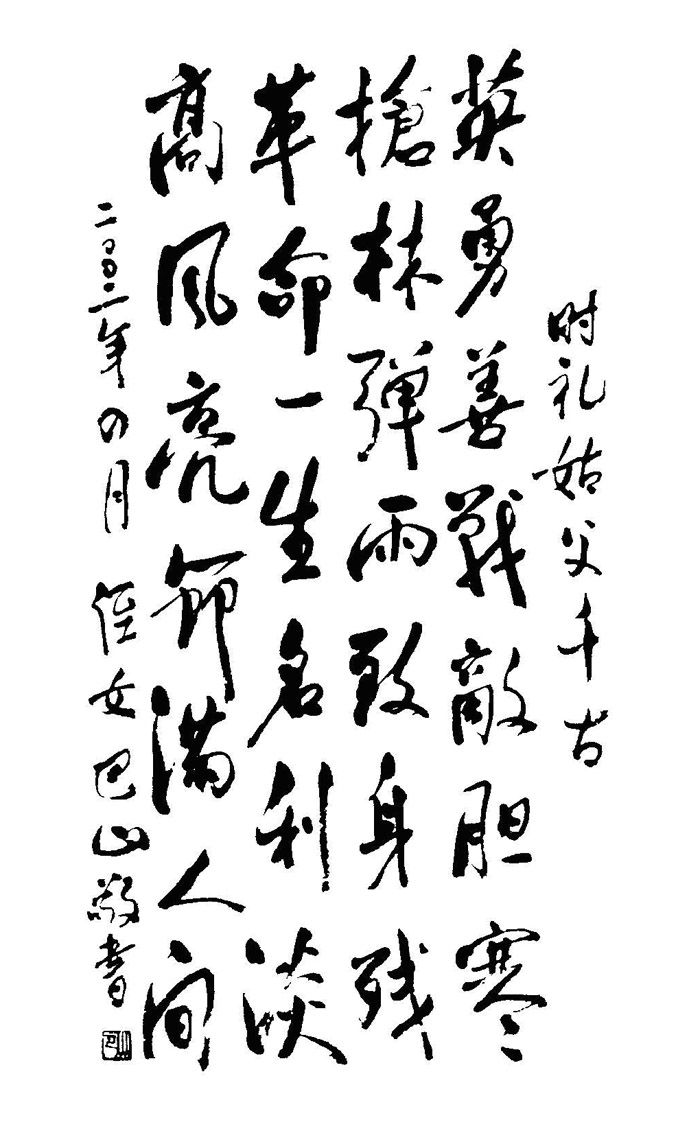 时礼姑父千古
英勇善戰敵胆寒
槍林弹雨致身残
革命一生名利淡
高风亮節满人间
二〇〇二年四月 侄女巴山敬書